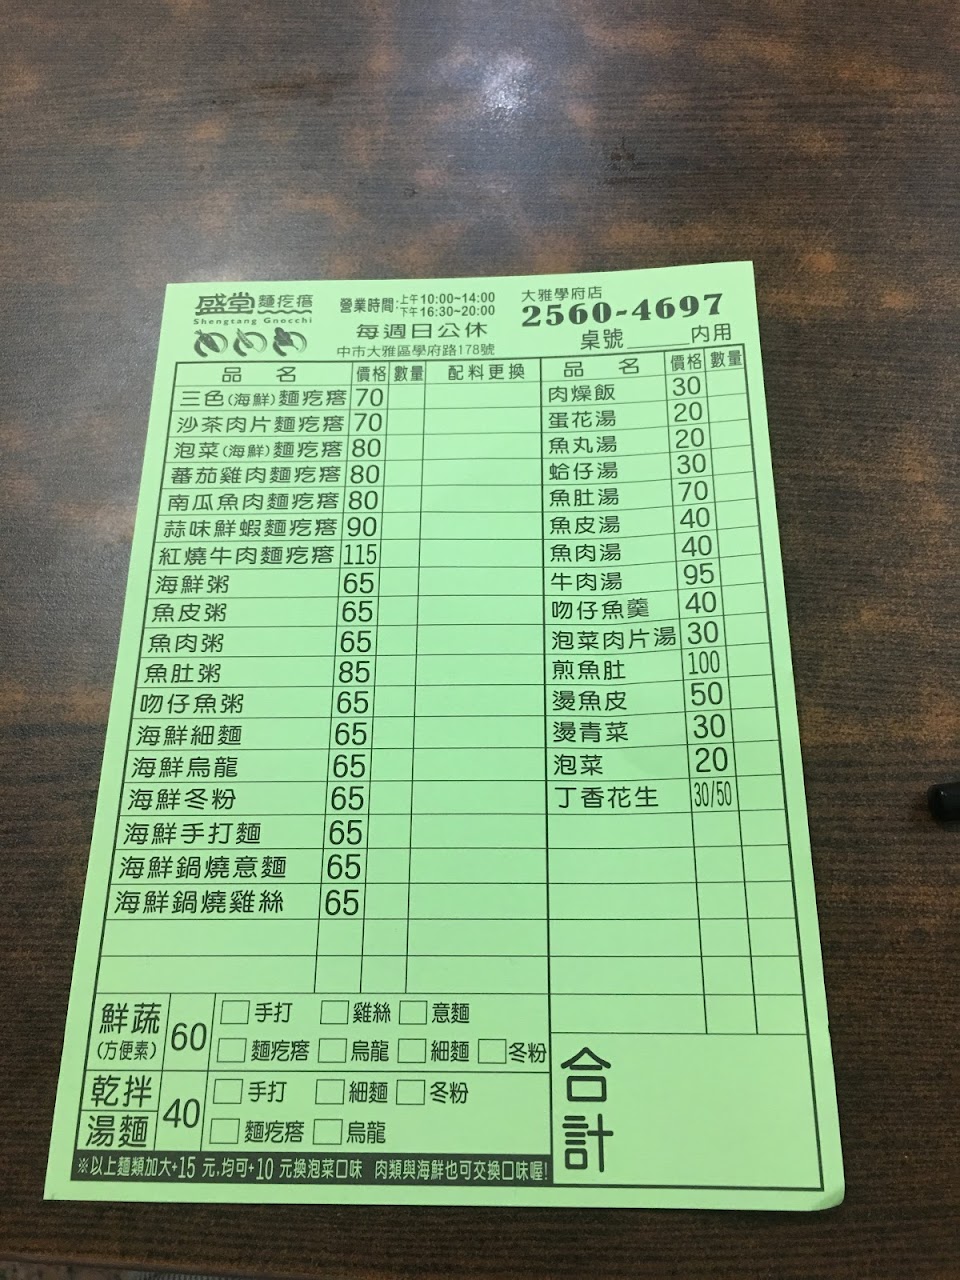 盛堂麵疙瘩
Shengtang Gnocchi
營業時間·上午10:00~14:00
下午16:30~20:00
每週日公休
中市大雅區學府路178號
大雅學府店
2560-4697
桌號______內用
品名 價格 數量 配料更換
三色(海鮮)麵疙瘩 70
沙茶肉片麵疙瘩 70
泡菜(海鮮)麵疙瘩 80
蕃茄雞肉麵疙瘩 80
南瓜魚肉麵疙瘩 80
蒜味鮮蝦麵疙瘩 90
紅燒牛肉麵疙瘩 115
海鮮粥 65
魚皮粥 65
魚肉粥 65
魚肚粥 85
吻仔魚粥 65
海鮮細麵 65
海鮮烏龍 65
海鮮冬粉 65
海鮮手打麵 65
海鮮鍋燒意麵 65
海鮮鍋燒雞絲 65
品名 價格 數量
肉燥飯 30
蛋花湯 20
魚丸湯 20
蛤仔湯 30
魚肚湯 70
魚皮湯 40
魚肉湯 40
牛肉湯 95
吻仔魚羹 40
泡菜肉片湯 30
煎魚肚 100
燙魚皮 50
燙青菜 30
泡菜 20
丁香花生 30/50
鮮蔬(方便素) 60
手打 雞絲 意麵
麵疙瘩 烏龍 細麵 冬粉
乾拌
湯麵
40
手打 細麵 冬粉
麵疙瘩 烏龍
※以上麵類加大+15 元.均可+10 元換泡菜口味 肉類與海鮮也可交換口味喔!
合計